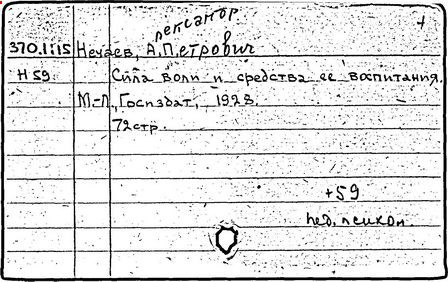 лександр
370.1:15 Нечаев, А.Петрович
Н59. Сила воли и средства ее воспитания.
М.-Л., Госиздат, 1928.
72стр.
+59
пед. психол.